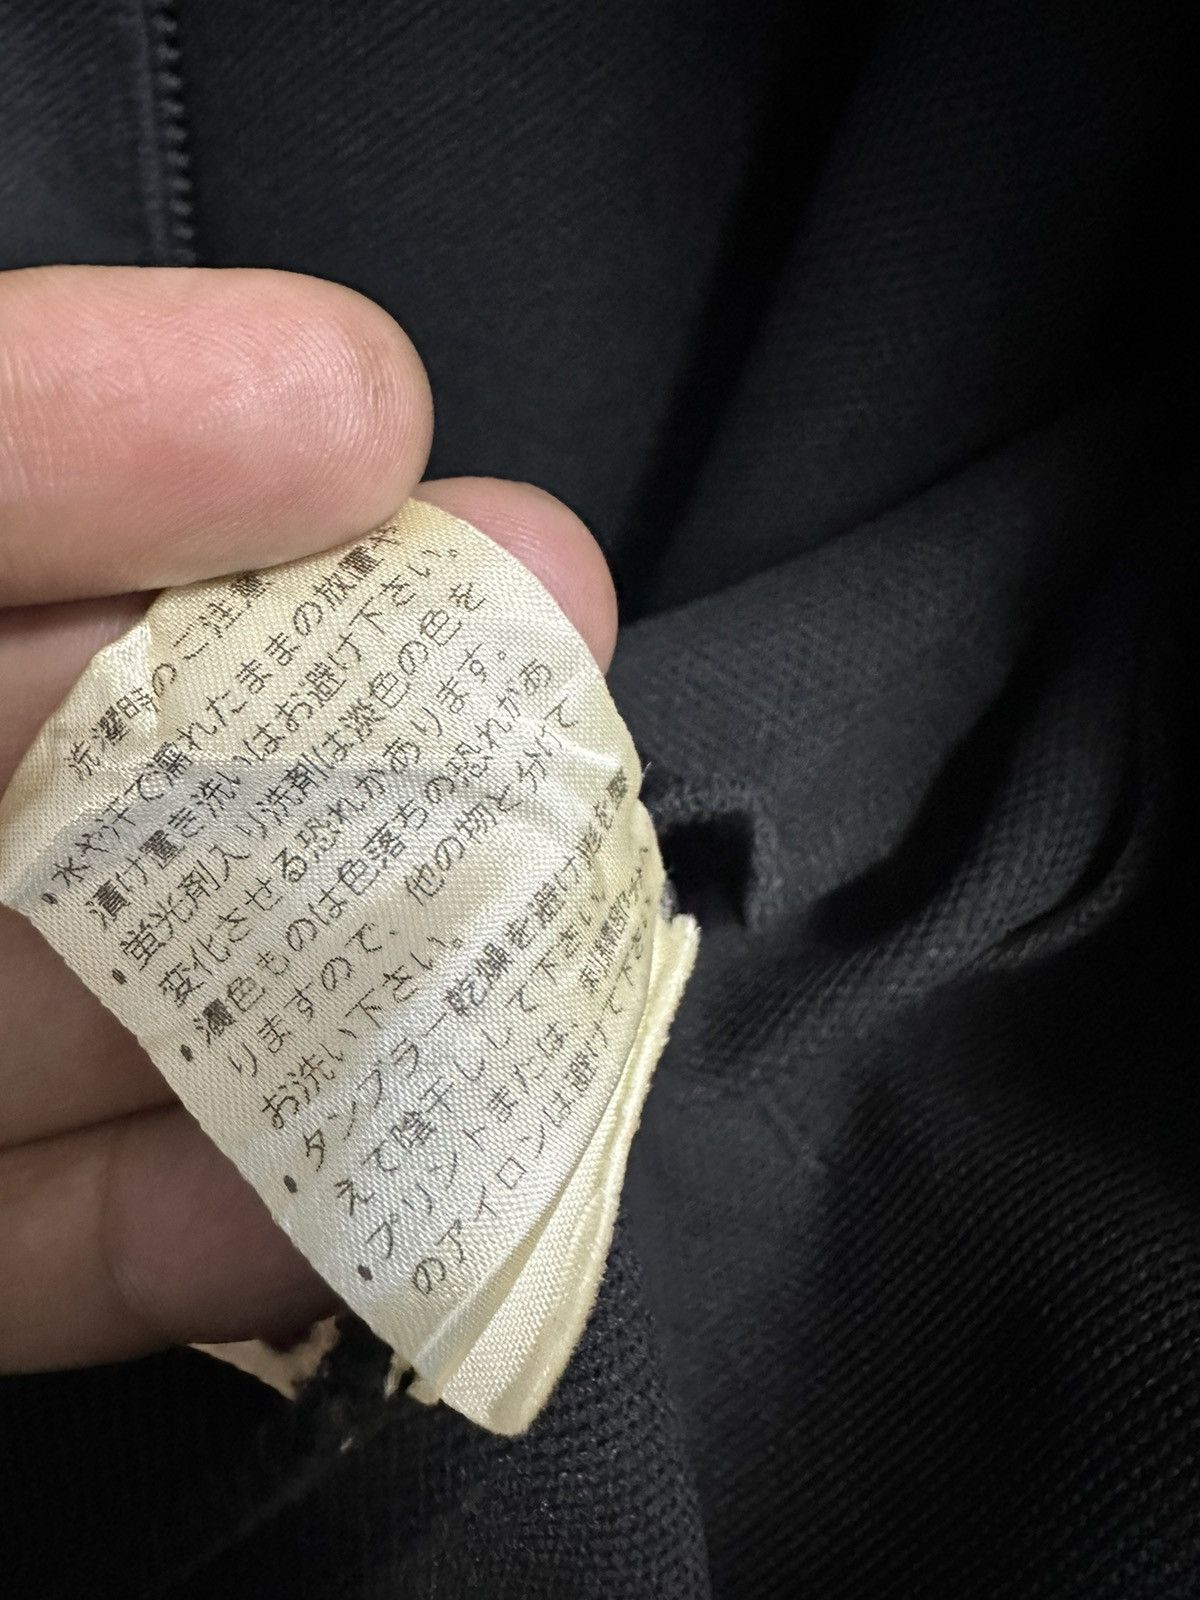 洗濯時のご注意
・水や汗で濡れたままの放置や
漬け置き洗いはお避け下さい。
・蛍光剤入り洗剤は淡色の色を
変化させる恐れがあります。
・濃色ものは色落ちの恐れがあ
りますので、他の物と分けて
お洗い下さい。
・タンブラー乾燥を避け形を整
えて陰干しして下さい。
・プリントまたは、
のアイロンは避けて下さい